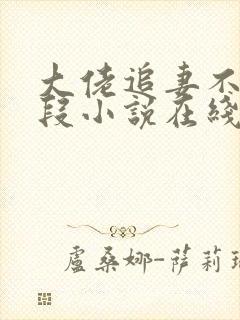 大佬追妻不
段小説在綫
盧桑娜-萨莉